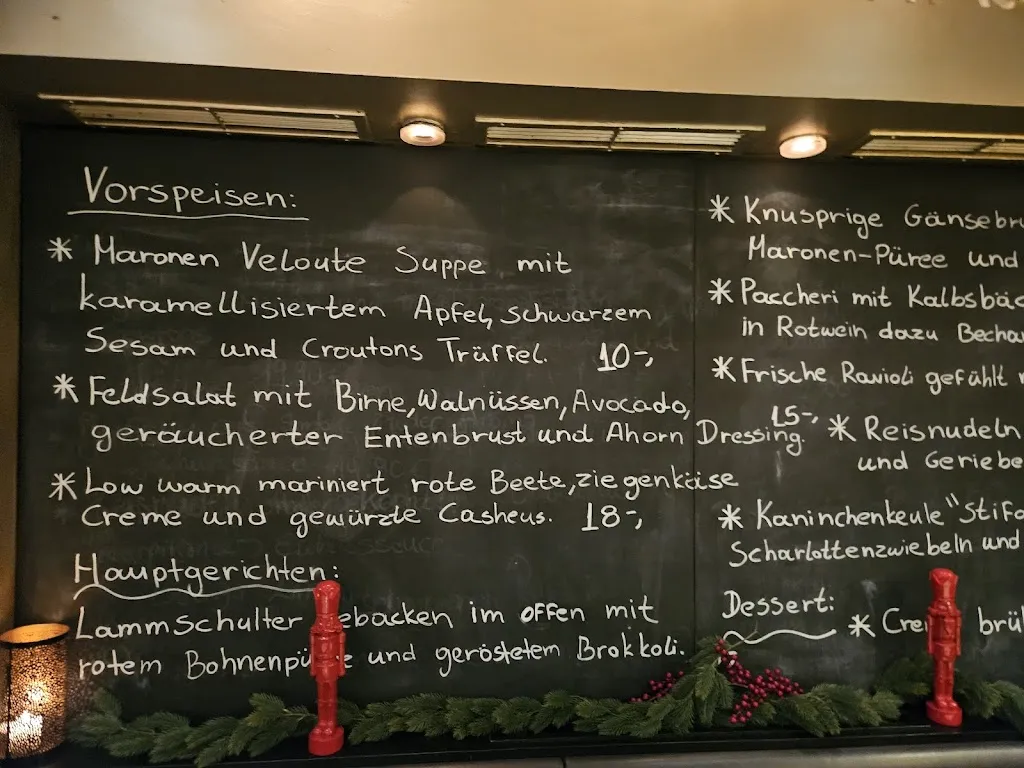 Vorspeisen:
* Maronen Veloute Suppe mit
karamellisiertem Apfel, schwarzem
Sesam und Croutons Trüffel. 10-,
* Feldsalat mit Birne, Walnüssen, Avocado,
geräucherter Entenbrust und Ahorn Dressing. 15-,
* Low warm mariniert rote Beete, ziegenkäise
Creme und gewürzte Casheus. 18-,
Hauptgerichten:
Lammschulter ebacken im offen mit
rotem Bohnenpü e und geröstetem Brokkoli.
* Knusprige Gänsebr
Maronen-Püree und
* Paccheri mit Kalbsbäc
in Rotwein dazu Becha
* Frische Ravioli gefühlt
* Reisnudeln
und Geriebe
* Kaninchenkeule "Stifa
Scharlottenzwiebeln und
Dessert:
* Cre brül